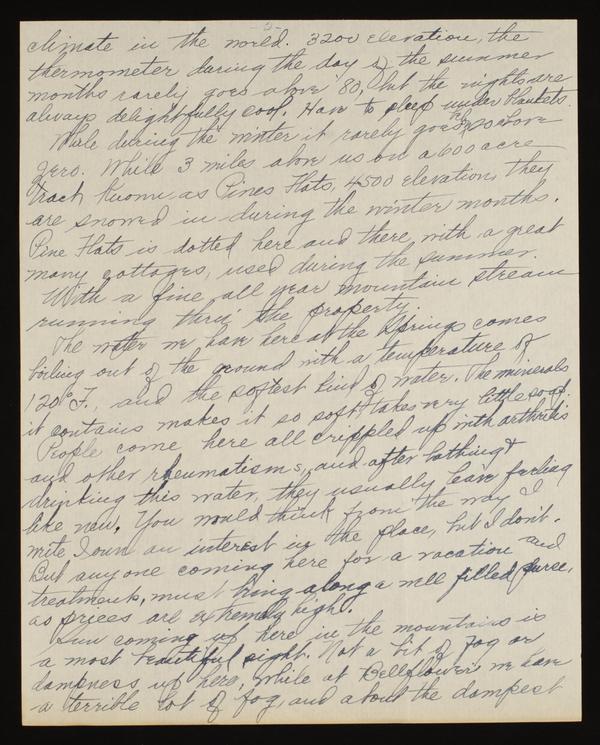 -5-
climate in the world. 3200 elevation, the
thermometer during the day of the summer
months rarely goes above 80, but the nights are
always delightfully cool. Have to sleep under blankets.
While during the winter it rarely goes above
zero. While 3 miles above us on a 600 acre
tract known as Pines Flats, 4500 elevation, they
are snowed in during the winter months.
Pine Flats is dotted here and there with a great
many cottages, used during the summer.
With a fine all year mountain stream
running thru' the property.
The water we have here at the Springs comes
boiling out of the ground with a temperature of
120° F., and the softest kind of water. The minerals
it contains makes it so soft takes very little soap.
People come here all crippled up with arthritis
and other rheumatisms, and after bathing &
drinking this water, they usually leave feeling
like new. You would think from the way I
write I own an interest in the place, but I don't.
But anyone coming here for a vacation and
treatments, must bring along a well filled purse,
as prices are extremely high.
Sun coming up here in the mountains is
a most beautiful sight. Not a bit of fog or
dampness up here, while at Bellflower we have
a terrible lot of fog, and about the dampest